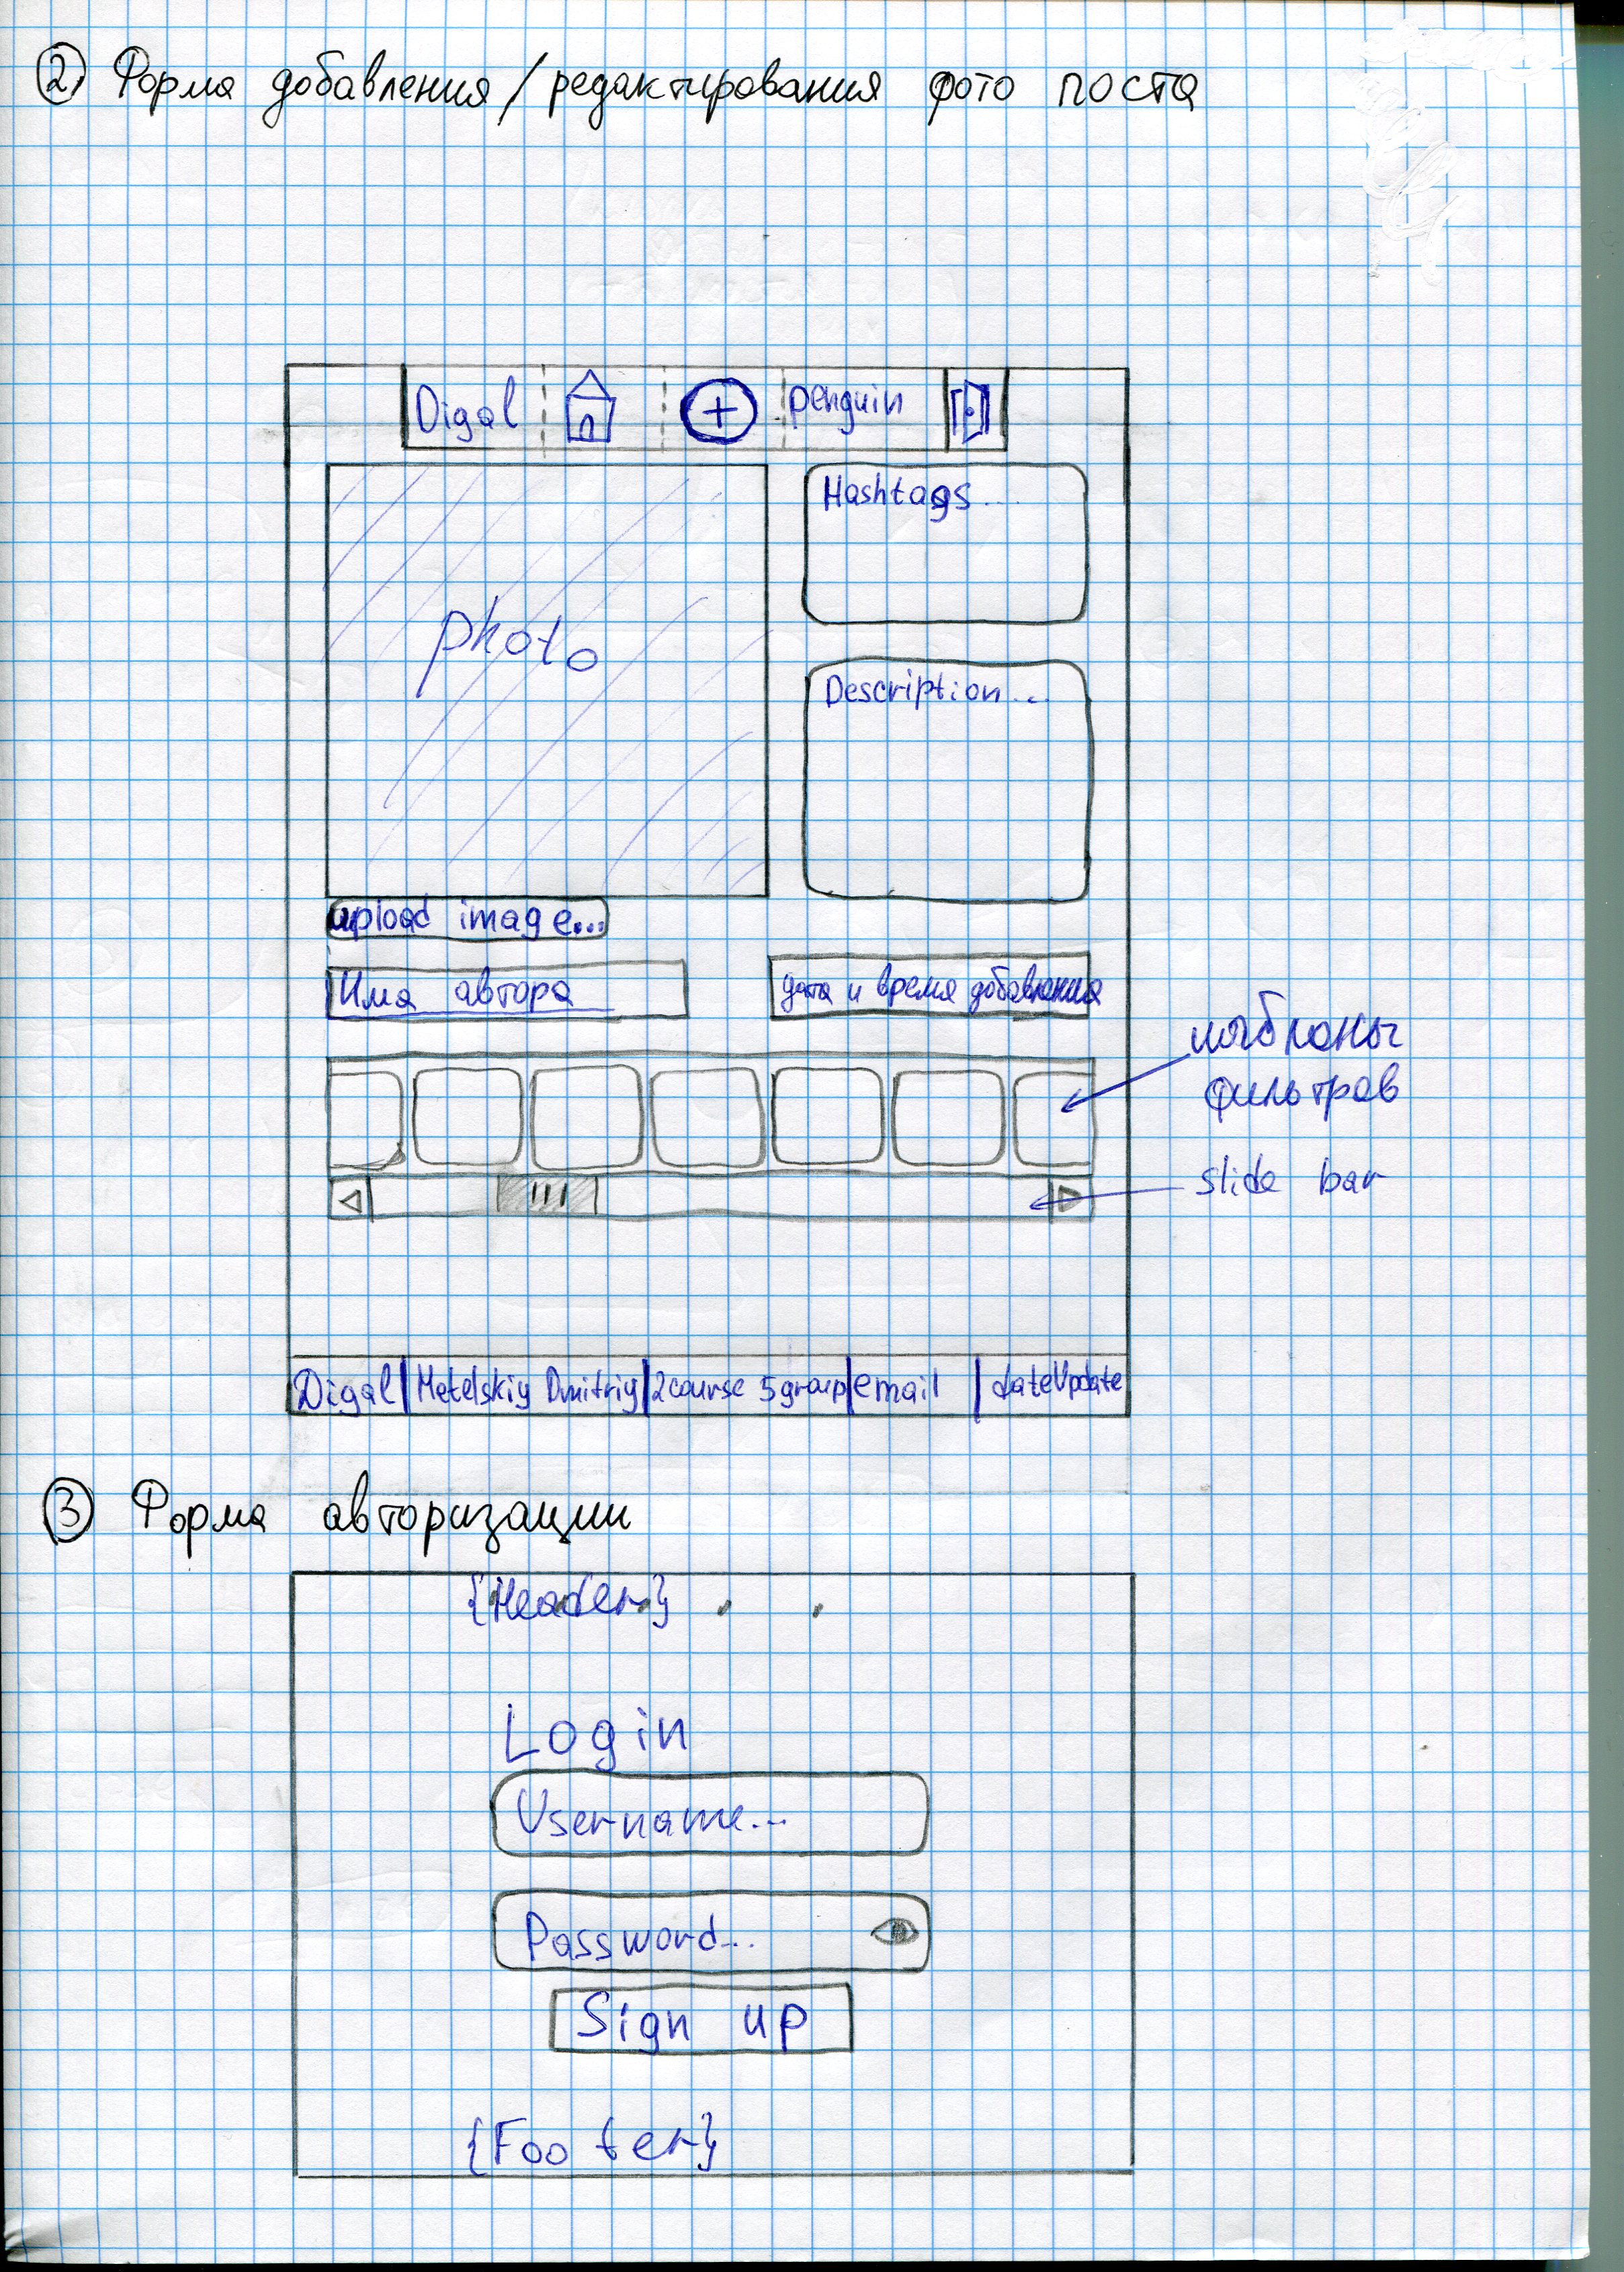 ② Форма добавления/редактирования фото поста
Digal + penguin
Hashtags...
photo
Description...
upload image...
Имя автора дата и время добавления
шаблоны
фильтров
slide bar
Digal | Metelskiy Dmitriy | 2course 5group | email | dateUpdate
③ Форма авторизации
{Header}
Login
Username...
Password...
Sign up
{Footer}